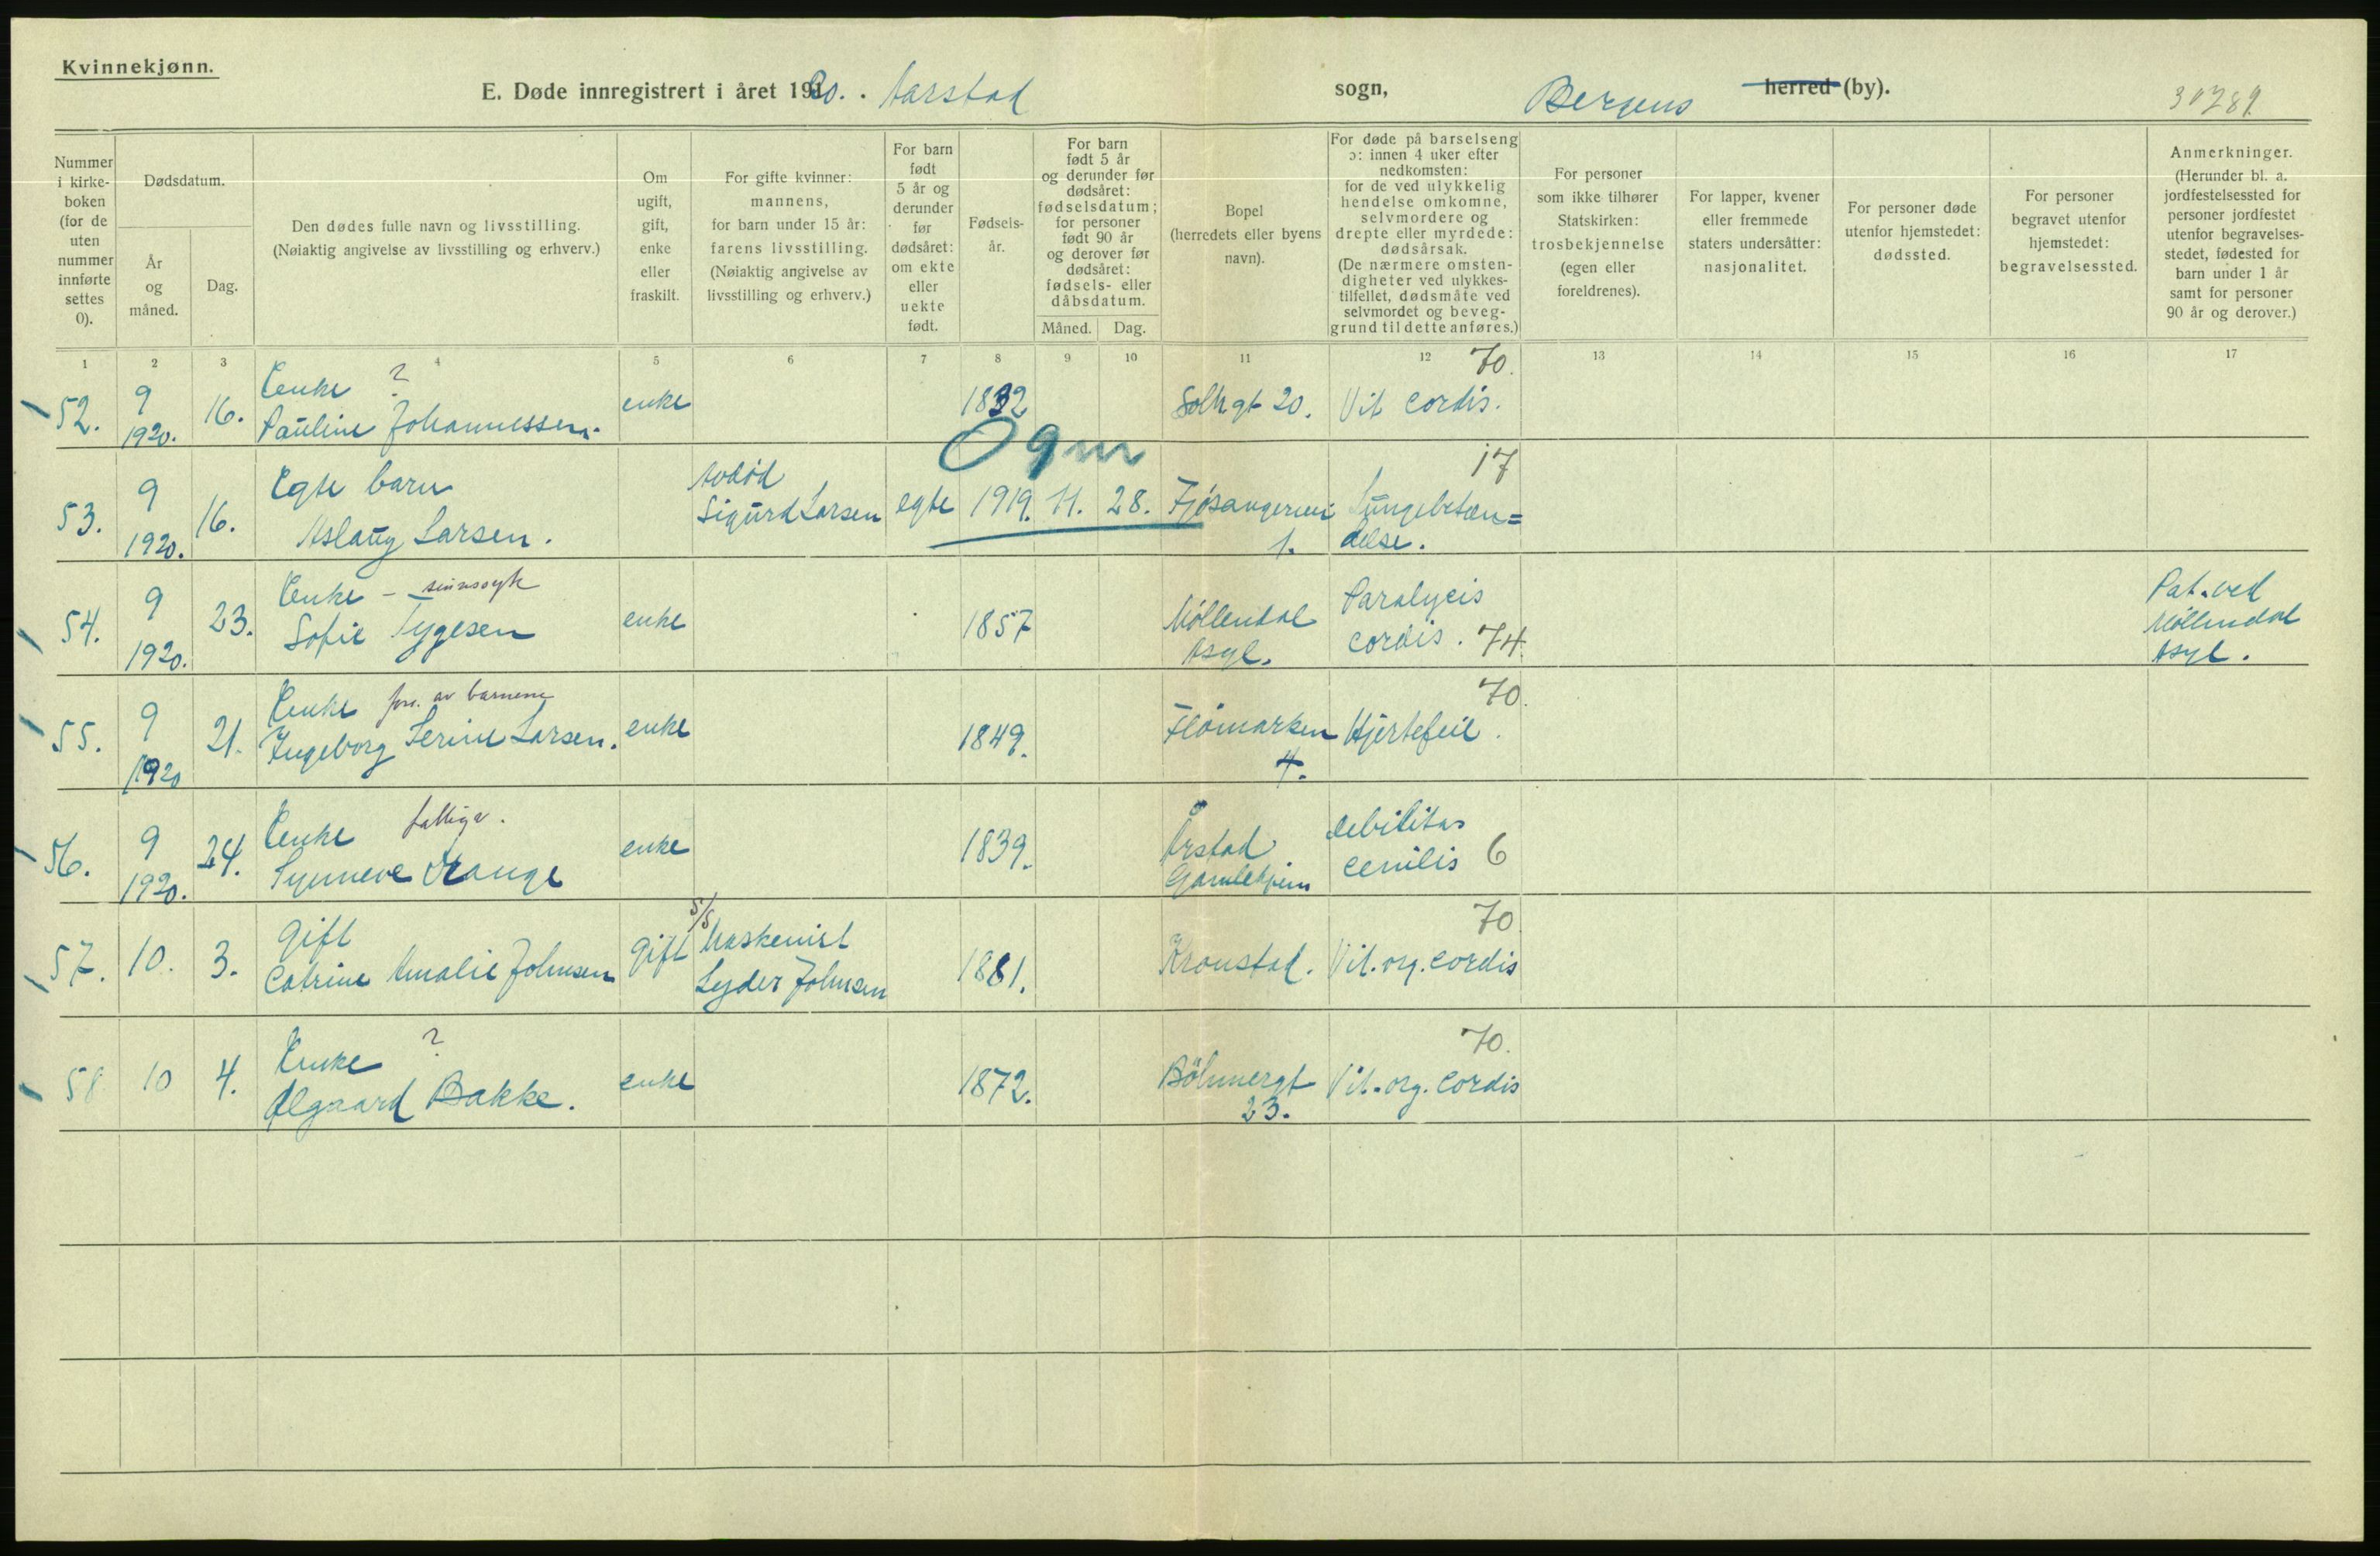 Kvinnekjønn.
E. Døde innregistrert i året 1920. Aarstad sogn, Bergens herred (by). 30789
Nummer i kirke- boken (for de uten nummer innførte settes 0).
Dødsdatum.
År og måned.
Dag.
Den dødes fulle navn og livsstilling.
(Nøiaktig angivelse av livsstilling og erhverv.)
Om ugift, gift, enke eller fraskilt.
For gifte kvinner: mannens, for barn under 15 år: farens livsstilling.
(Nøiaktig angivelse av livsstilling og erhverv.)
For barn født 5 år og derunder før dødsåret: om ekte eller uekte født.
Fødsels- år.
For barn født 5 år og derunder før dødsåret: fødselsdatum; for personer født 90 år og derover før dødsåret: fødsels- eller dåbsdatum.
Måned. Dag.
Bopel
(herredets eller byens navn).
For døde på barselseng ɔ: innen 4 uker efter nedkomsten: for de ved ulykkelig hendelse omkomne, selvmordere og drepte eller myrdede: dødsårsak.
(De nærmere omsten- digheter ved ulykkes- tilfellet, dødsmåte ved selvmordet og beveg- grund til dette anføres.)
For personer som ikke tilhører Statskirken: trosbekjennelse (egen eller foreldrenes).
For lapper, kvener eller fremmede staters undersåtter: nasjonalitet.
For personer døde utenfor hjemstedet: dødssted.
For personer begravet utenfor hjemstedet: begravelsessted.
Anmerkninger.
(Herunder bl. a. jordfestelsessted for personer jordfestet utenfor begravelses- stedet, fødested for barn under 1 år samt for personer 90 år og derover.)
1 2 3 4 5 6 7 8 9 10 11 12 13 14 15 16 17
52. 9 1920. 16. Enke ? Pauline Johannessen. enke 1832 Solhgt 20. Vit cordis. 70.
0 9 m
53. 9 1920. 16. Egte barn Aslaug Larsen. Sigurd Larsen egte 1919. 11. 28. Fjøsangervei 1. Lungebetæn= delse. 17
54. 9 1920. 23. Enke - sinnssyk Sofie Tygesen enke 1857 Møllendal Asyl. Paralycis cordis. 74. Pat. ved Møllendal Asyl.
55. 9 1920 21. Enke fors. av barnene Ingeborg Serine Larsen. enke 1849. Flømarken 4. Hjertefeil. 70.
56. 9 1920. 24. Enke fattige. Synneve Mange enke 1839. Årstad Gamlehjem debilitas cenilis 6
57. 10. 3. gift Catrine Amalie Johnsen gift s/s Maskenist Lyder Johnsen 1881. Kronstad. Vit. org. cordis 70
58 10 4. Enke ? Ølgaard Bakke. enke 1872. Böhmergt 23. Vit. org. Cordis 70.